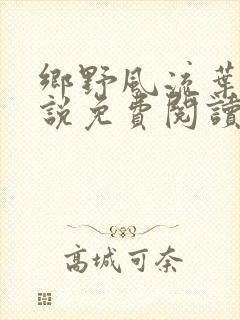 鄉野風流葉
說免費閱讀
高城可奈